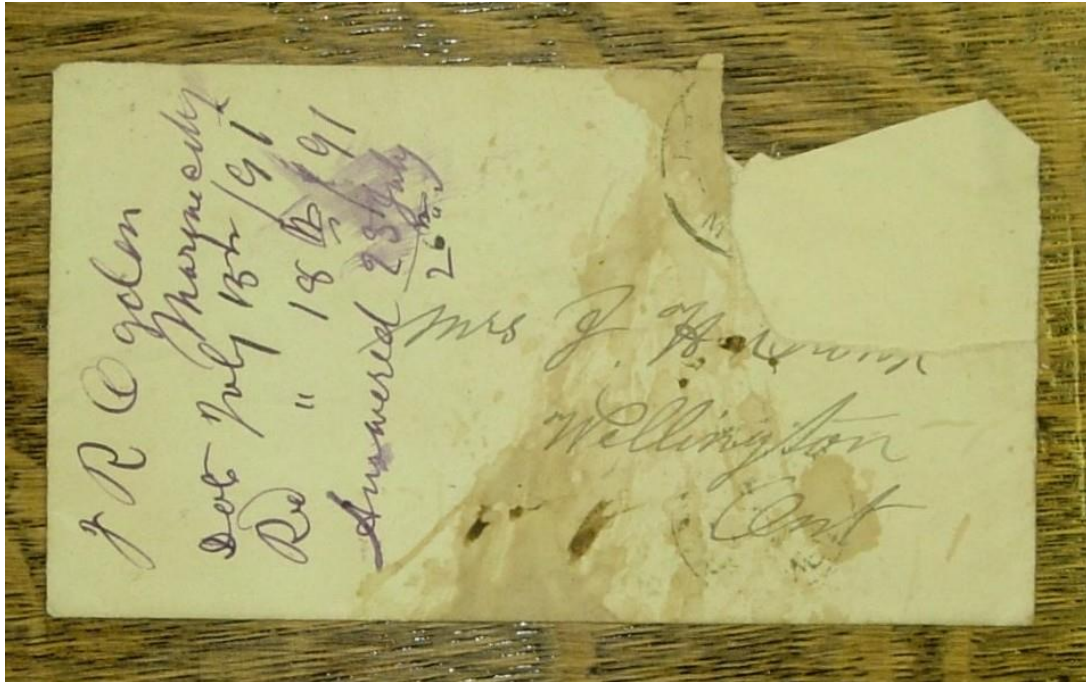 J R Ogden
Marynesky
Dob July 13th/91
Rd " 18th/91
Answered 23 July
20th "
Mrs J. H. 
Wellington
Ont